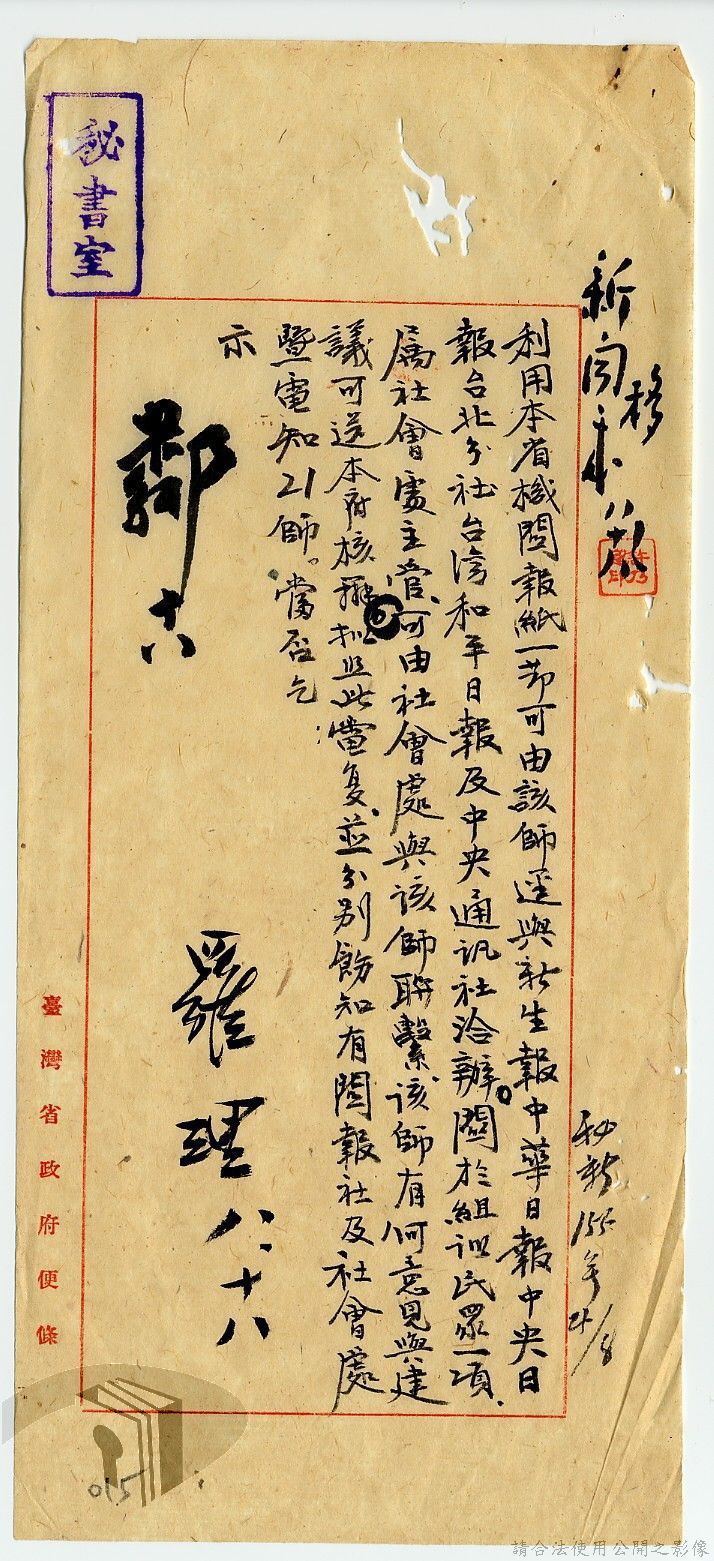 秘書室
新聞
移
利用本省機關報紙一節可由該師逕與新生報中華日報中央日
報台北分社台灣和平日報及中央通訊社洽辦。關於組訓民眾一項、
屬社會處主管、可由社會處與該師聯繫、該師有何意見與建
議可送本府核辦擬照此電复、並分別飭知有關報社及社會處
暨電知21師。當否乞
示
十八
羅理八、十八
臺灣省政府便條
015
請合法使用公開之影像